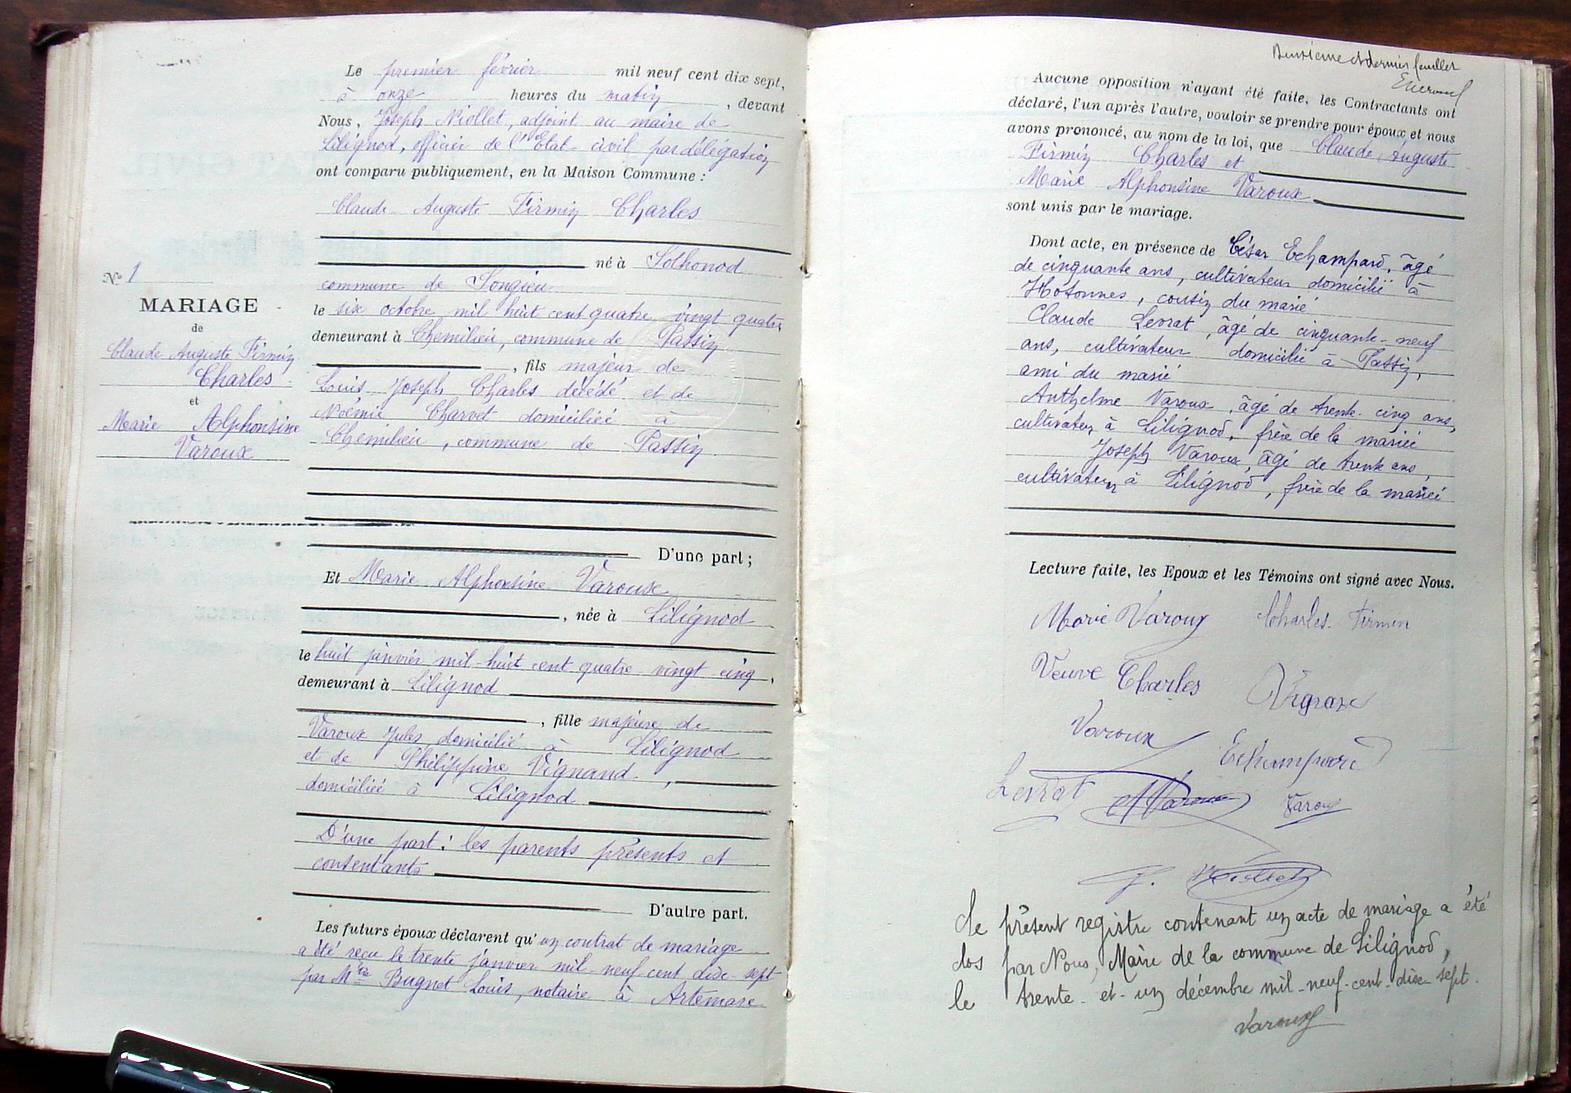 N° 1
MARIAGE
de
Claude Auguste Firmin
Charles
et
Marie Alphonsine
Varoux
Le premier février mil neuf cent dix sept,
à onze heures du matin, devant
Nous, Joseph Niollet, adjoint au maire de
Lilignod, officier de l'Etat-civil par délégation
ont comparu publiquement, en la Maison Commune :
Claude Auguste Firmin Charles
né à Sothonod
commune de Songieu
le six octobre mil huit cent quatre vingt quatre
demeurant à Chemilieu, commune de Passin
, fils majeur de
Louis Joseph Charles décédé et de
Noémie Charvet domiciliée à
Chemilieu, commune de Passin
D'une part ;
Et Marie Alphonsine Varoux
, née à Lilignod
le huit janvier mil-huit cent quatre vingt cinq,
demeurant à Lilignod
, fille majeure de
Varoux Jules domicilié à Lilignod
et de Philippine Vignand,
domiciliée à Lilignod
D'une part : les parents présents et
consentants
D'autre part.
Les futurs époux déclarent qu'un contrat de mariage
a été reçu le trente janvier mil-neuf cent dix-sept
par Me Bugnet Louis, notaire à Artemare
Deuxième et dernier feuillet
Aucune opposition n'ayant été faite, les Contractants ont
déclaré, l'un après l'autre, vouloir se prendre pour époux et nous
avons prononcé, au nom de la loi, que Claude Auguste
Firmin Charles et
Marie Alphonsine Varoux
sont unis par le mariage.
Dont acte, en présence de César Echampard, âgé
de cinquante ans, cultivateur domicilié à
Hotonnes, cousin du marié
Claude Levrat, âgé de cinquante-neuf
ans, cultivateur domicilié à Passin,
ami du marié
Anthelme Varoux, âgé de trente-cinq ans,
cultivateur à Lilignod, frère de la mariée
Joseph Varoux, âgé de trente ans,
cultivateur à Lilignod, frère de la mariée
Lecture faite, les Epoux et les Témoins ont signé avec Nous.
Marie Varoux Charles Firmin
Veuve Charles
Varoux Echampard
Levrat A Varoux Varoux
J. Niollet
Le présent registre contenant un acte de mariage a été
clos par Nous, Maire de la commune de Lilignod,
le trente-et-un décembre mil-neuf-cent-dix-sept.
Varoux